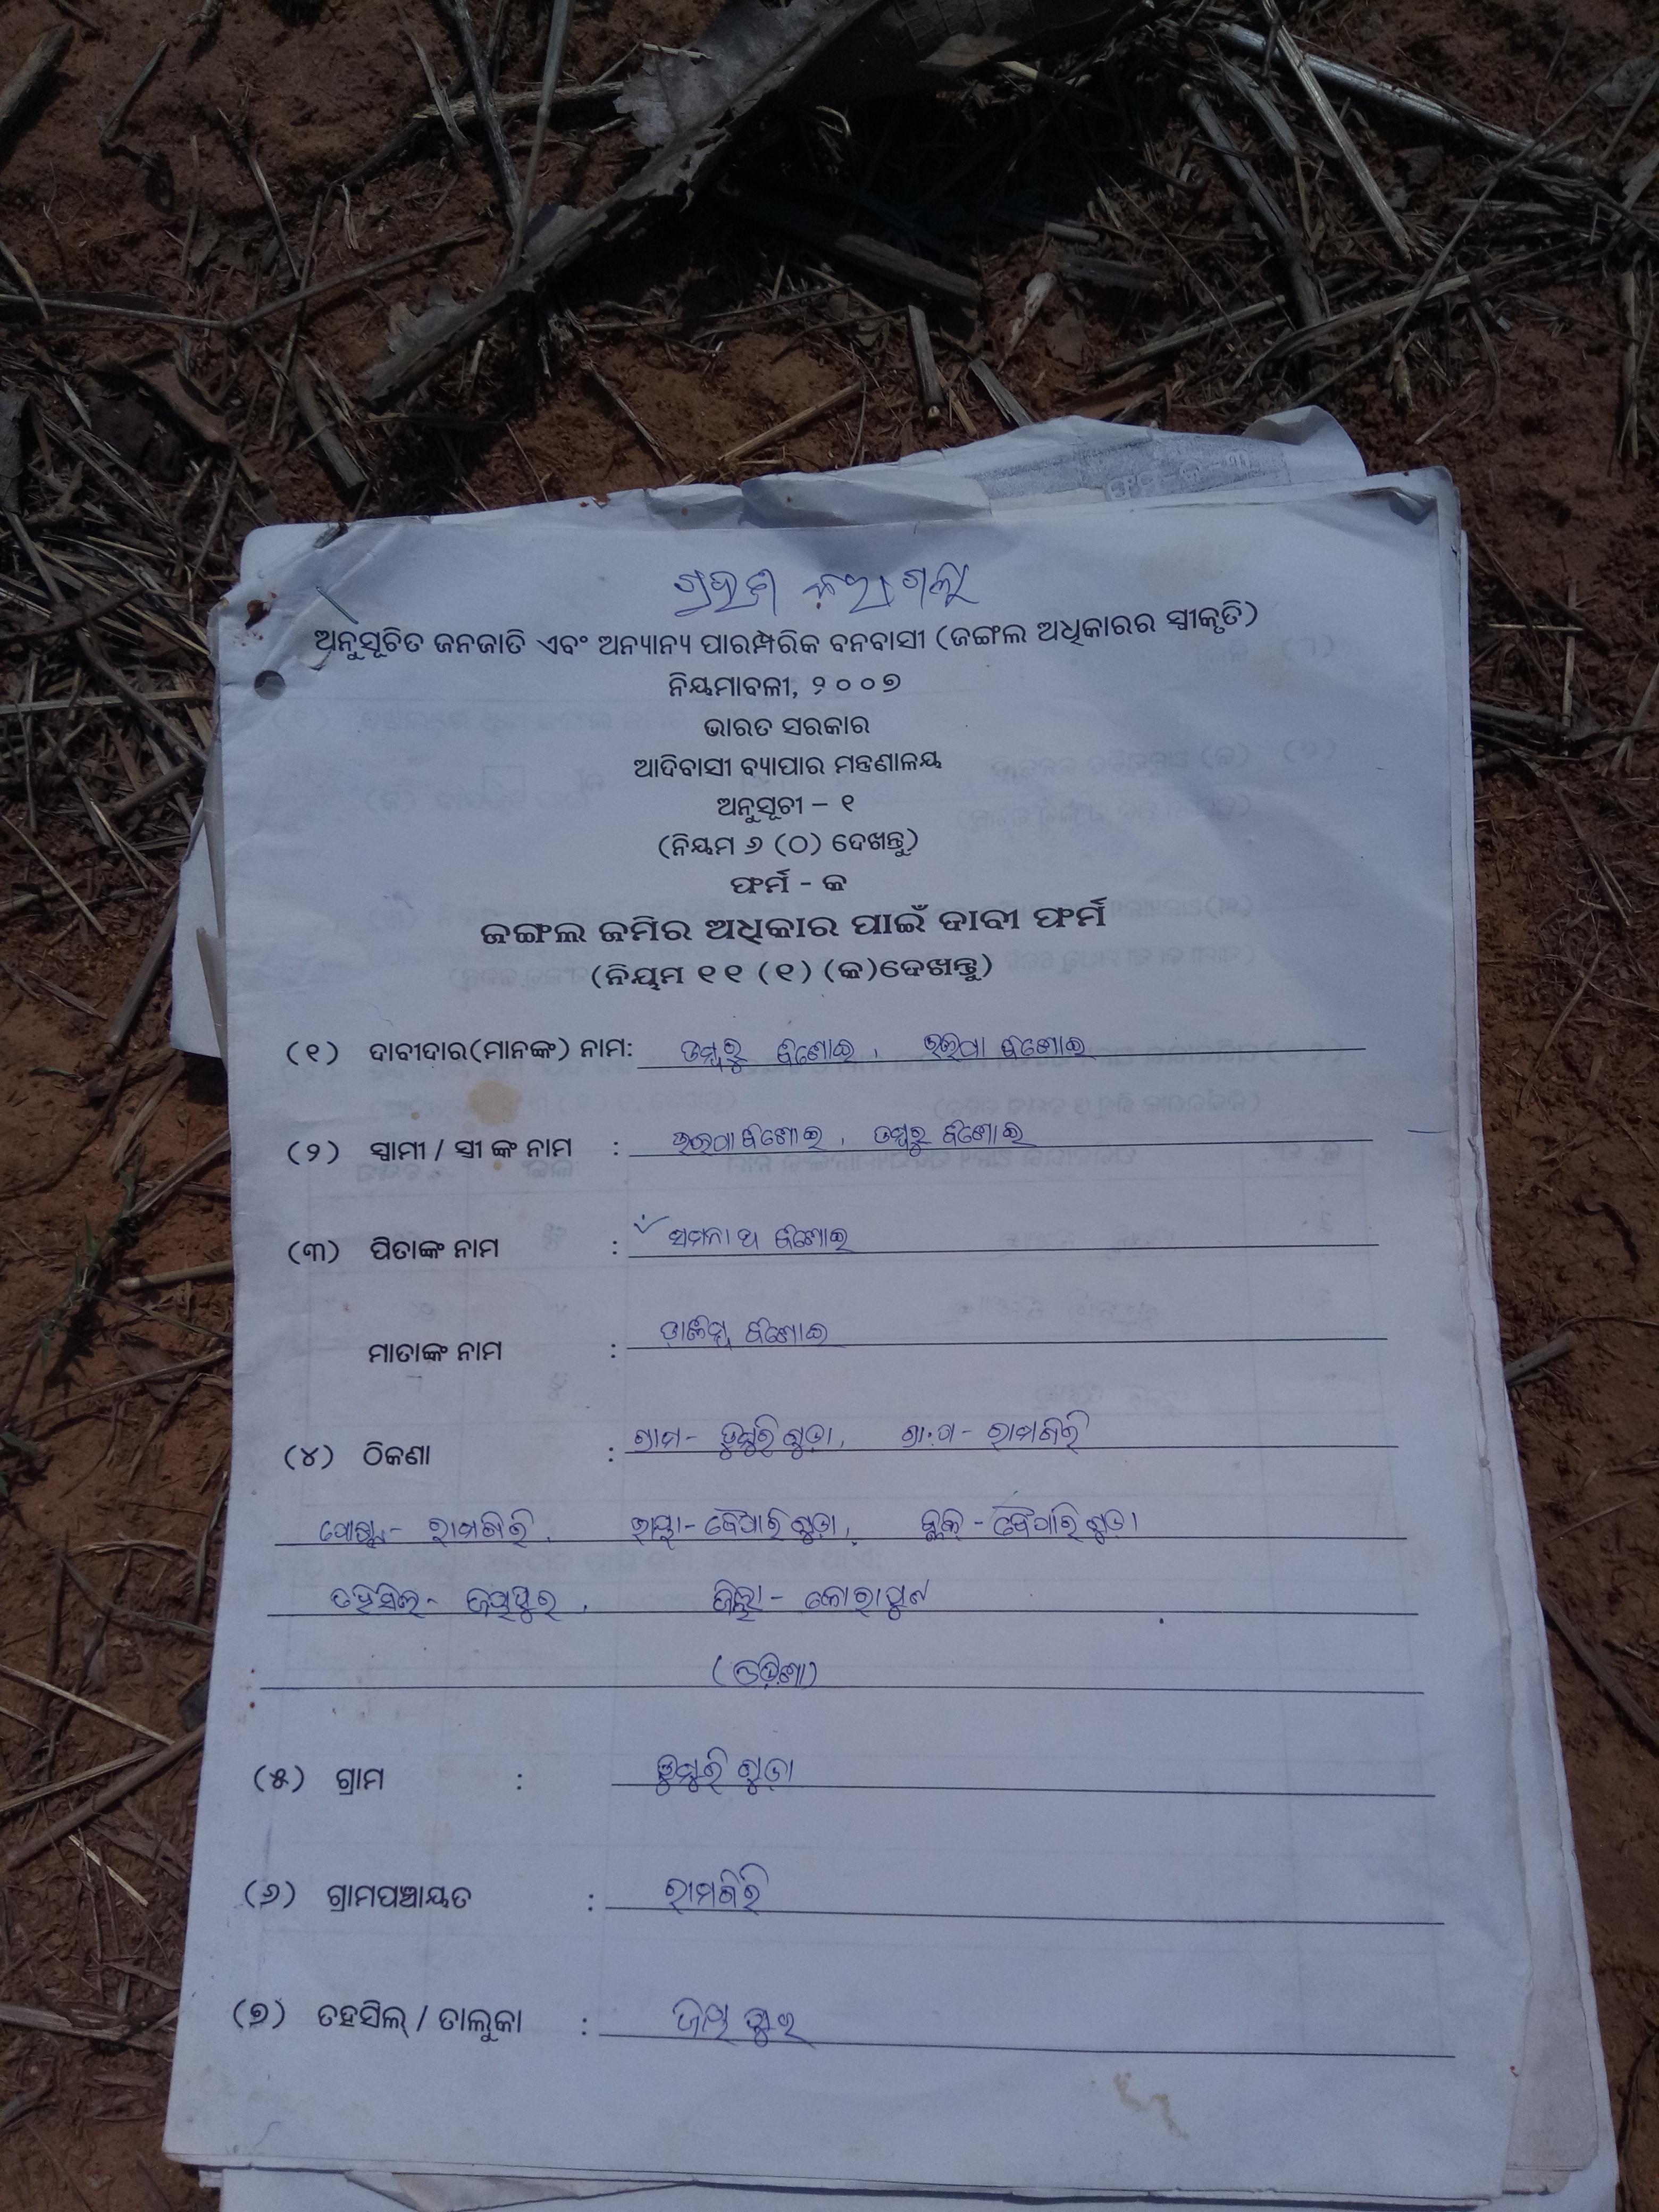 ଗ୍ରହଣ କରାଗଲା
ଅନୁସୂଚିତ ଜନଜାତି ଏବଂ ଅନ୍ୟାନ୍ୟ ପାରମ୍ପରିକ ବନବାସୀ (ଜଙ୍ଗଲ ଅଧିକାରର ସ୍ୱୀକୃତି)
ନିୟମାବଳୀ, ୨୦୦୭
ଭାରତ ସରକାର
ଆଦିବାସୀ ବ୍ୟାପାର ମନ୍ତ୍ରଣାଳୟ
ଅନୁସୂଚୀ – ୧
(ନିୟମ ୬ (ଠ) ଦେଖନ୍ତୁ)
ଫର୍ମ - କ
ଜଙ୍ଗଲ ଜମିର ଅଧିକାର ପାଇଁ ଦାବୀ ଫର୍ମ
(ନିୟମ ୧୧ (୧) (କ)ଦେଖନ୍ତୁ)
(୧) ଦାବୀଦାର(ମାନଙ୍କ) ନାମ: ଡମ୍ବରୁ ବିଶୋଇ,
(୨) ସ୍ୱାମୀ / ସ୍ତ୍ରୀ ଙ୍କ ନାମ : ବିଶୋଇ, ଡମ୍ବରୁ ବିଶୋଇ
(୩) ପିତାଙ୍କ ନାମ : ବିଶୋଇ
ମାତାଙ୍କ ନାମ : ବିଶୋଇ
(୪) ଠିକଣା : ଗ୍ରାମ- ଡୁମୁରିଗୁଡ଼ା, ଗ୍ରା.ପ - ରାମଗିରି
ପୋଷ୍ଟ- ରାମଗିରି, ଭାୟା- ବୈପାରିଗୁଡ଼ା, ବ୍ଲକ୍ - ବୈପାରିଗୁଡା
ତହସିଲ- ଜୟପୁର, ଜିଲ୍ଲା- କୋରାପୁଟ
(ଓଡ଼ିଶା)
(୫) ଗ୍ରାମ : ଡୁମୁରିଗୁଡ଼ା
(୬) ଗ୍ରାମପଞ୍ଚାୟତ : ରାମଗିରି
(୭) ତହସିଲ୍ / ତାଲୁକା : ଜୟପୁର